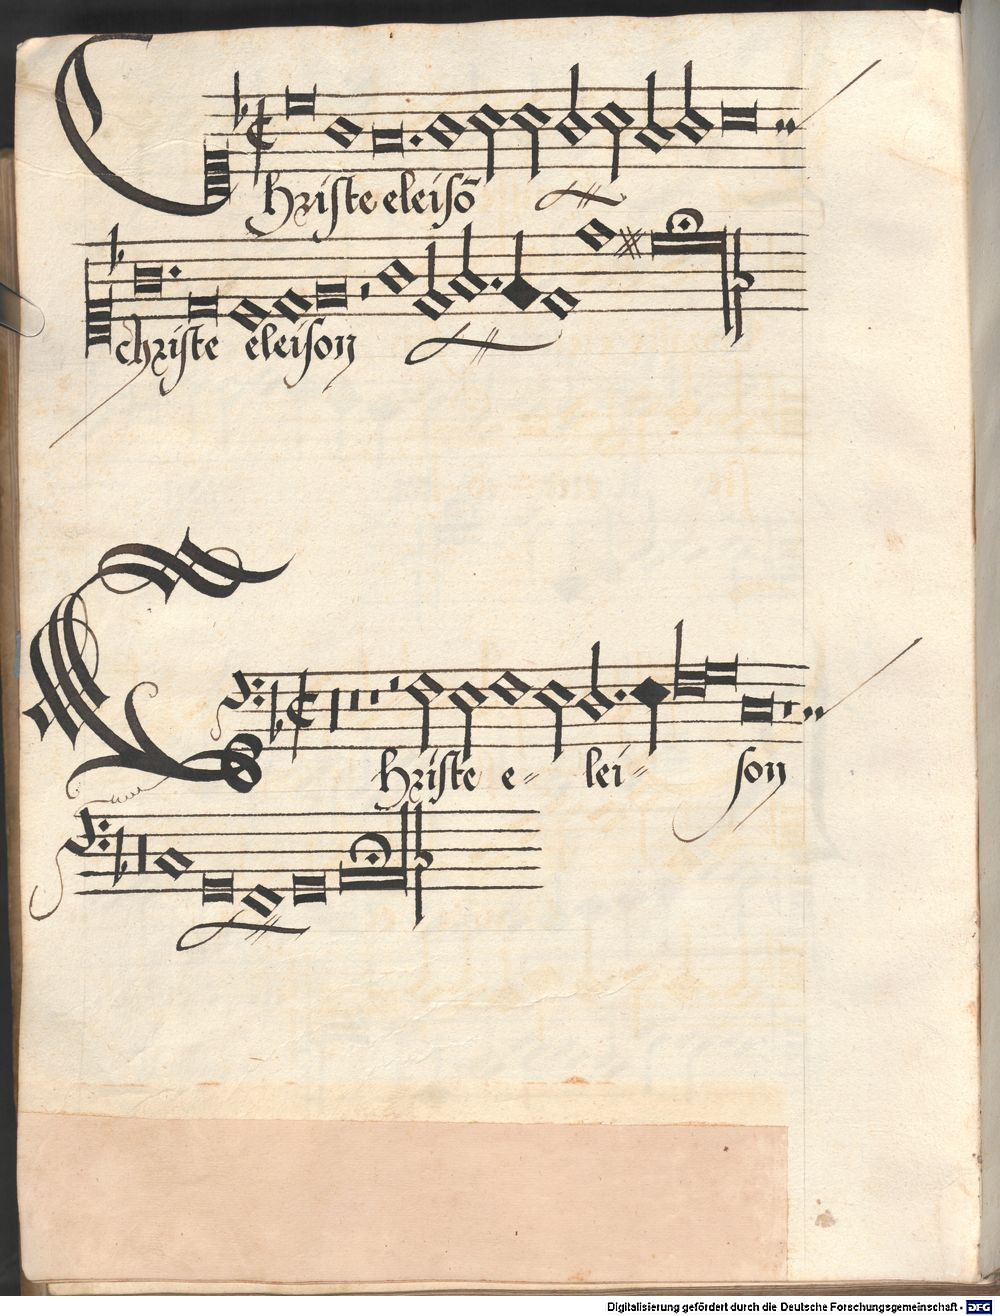 Christe eleisō
christe eleison
Christe e= lei= son
Digitalisierung gefördert durch die Deutsche Forschungsgemeinschaft - DFG